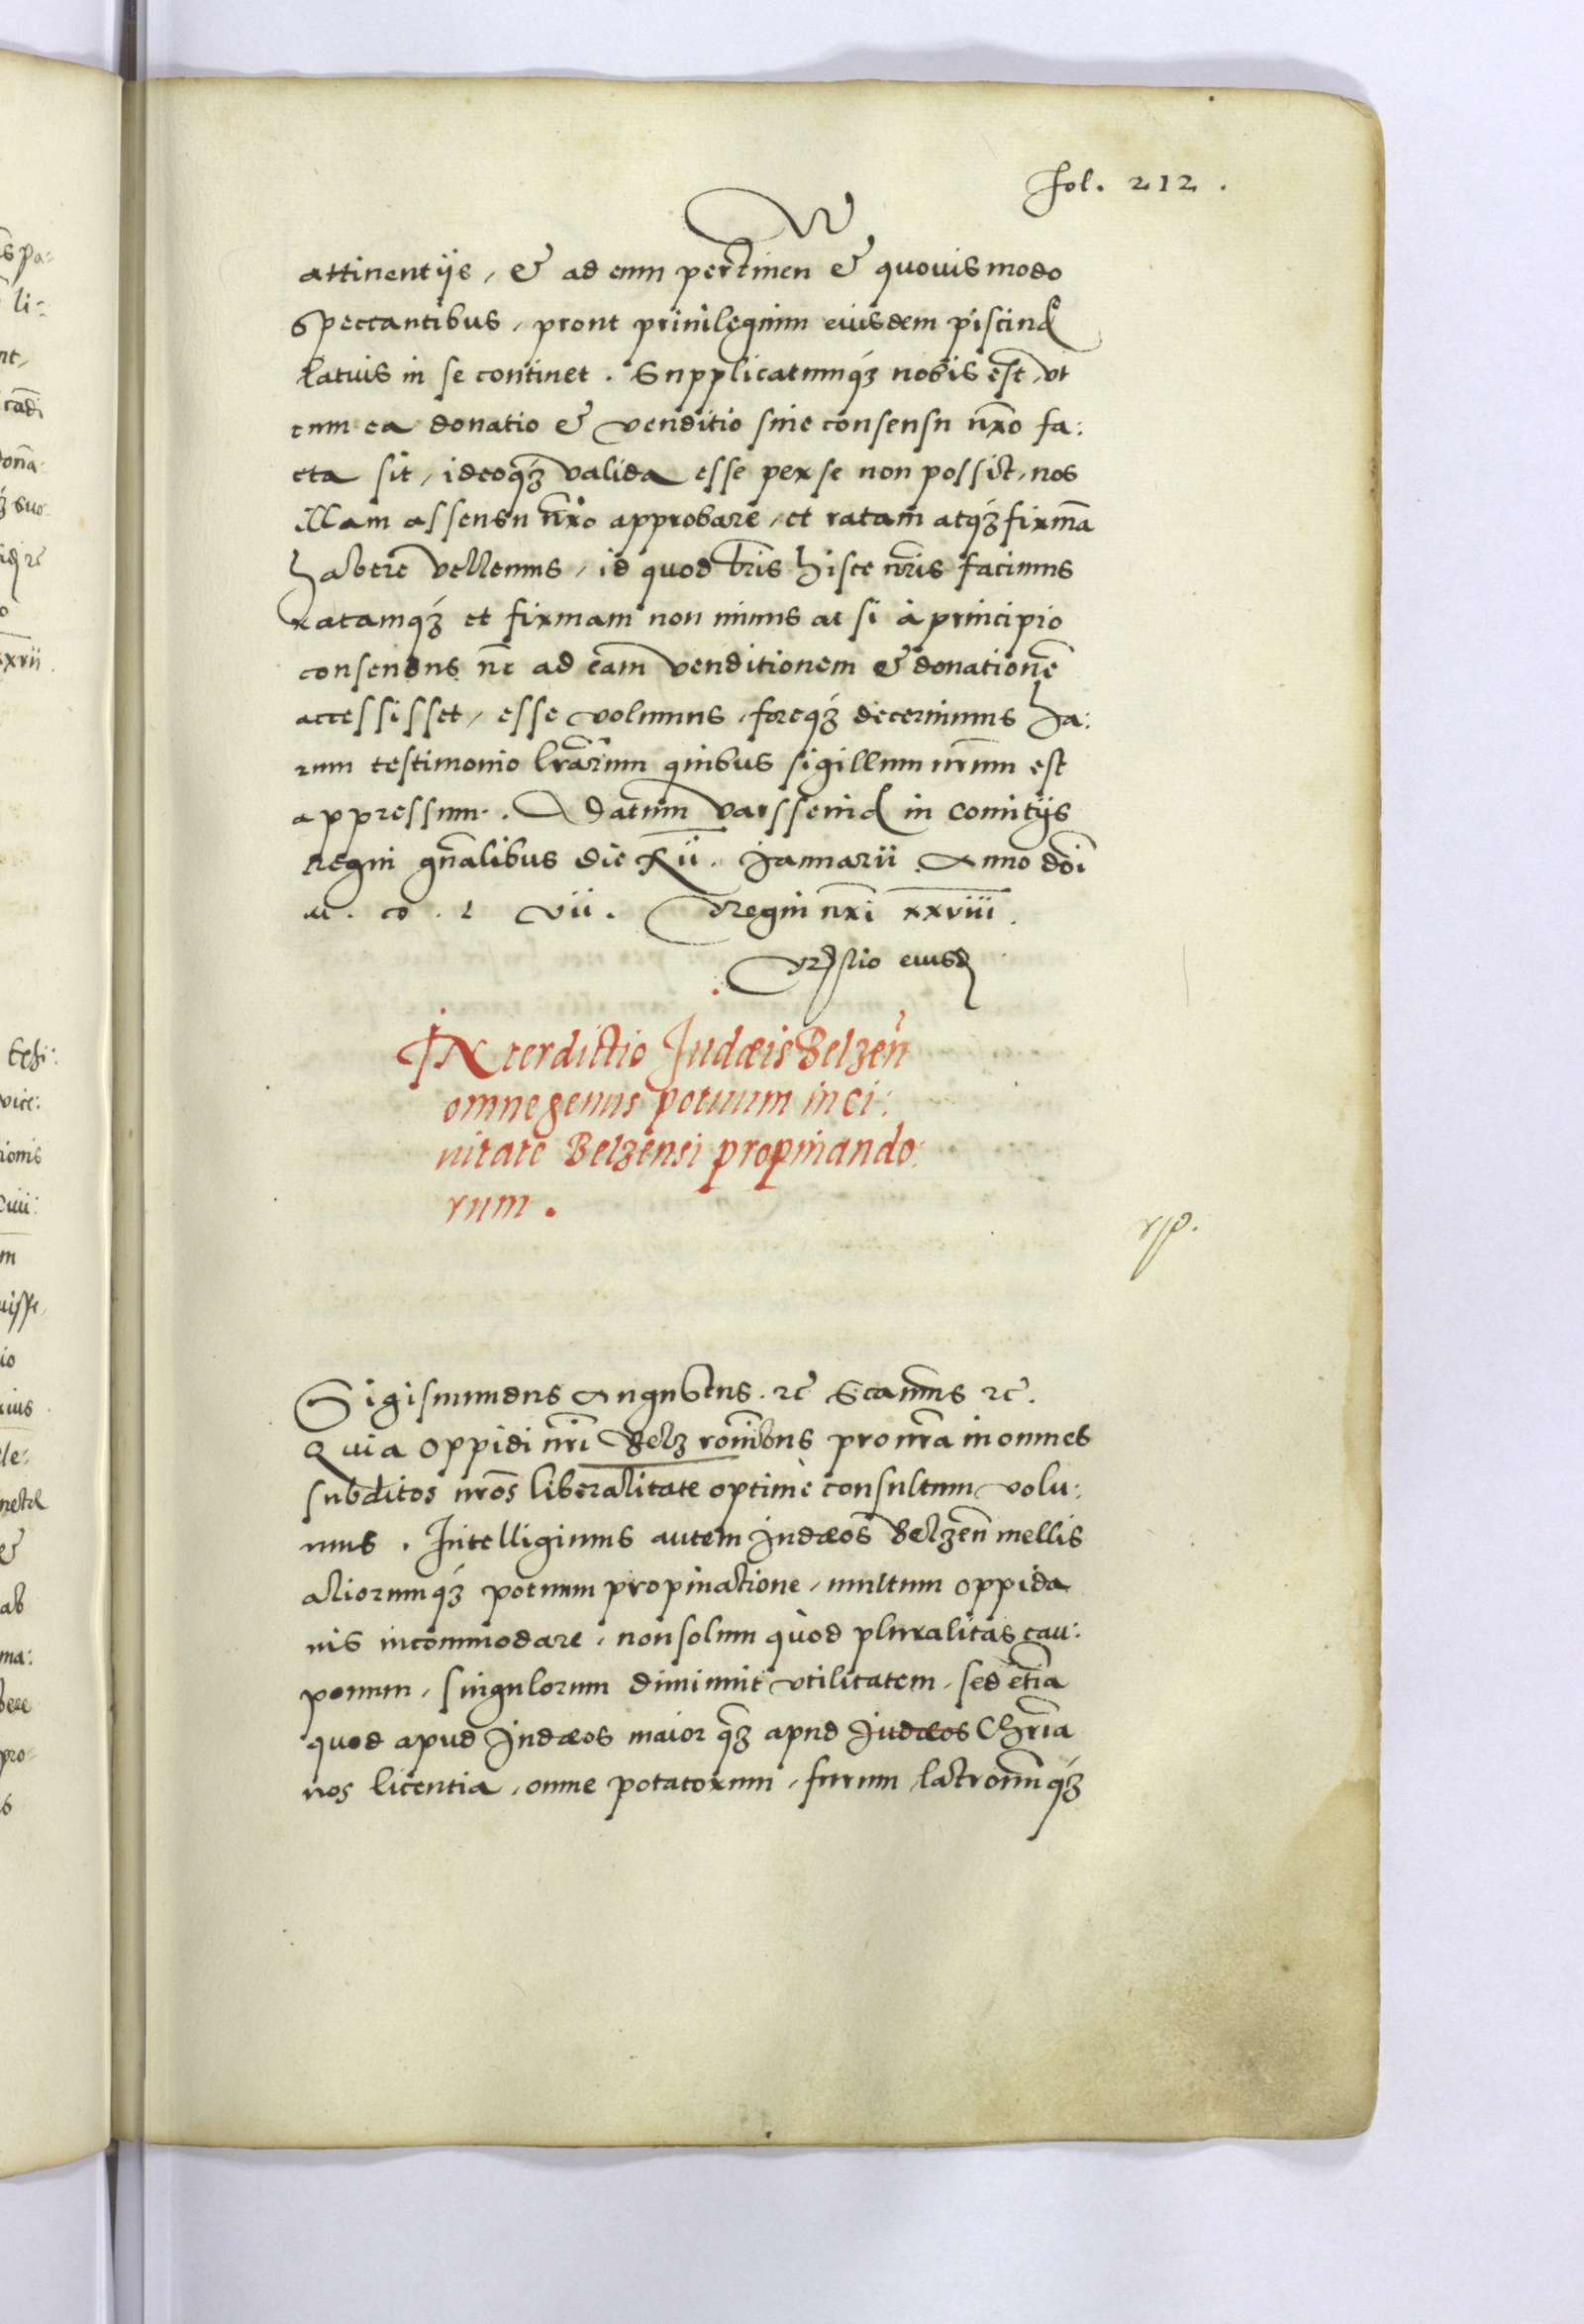 fol. 212.
attinentijs, & ad eum pertinen̄ & quouis modo
spectantibus, prout priuilegium eiusdem piscinæ
latius in se continet. Supplicatumq́ʒ nobis est, vt
cum ea donatio & venditio sine consensu nr̄o fa:
cta sit, ideoq́ʒ valida esse per se non possit, nos
illam assensu nr̄o approbare, et ratam atq́ʒ firmā
habere vellemus, id quod lr̄is hisce nr̄is facimus
ratamq́ʒ et firmam non minus ac si à principio
consensus nr̄ ad eam venditionem & donationē
accessisset, esse volumus, foreq́ʒ decernimus ha:
rum testimonio lr̄arum quibus sigillum nr̄um est
appressum. Datum Varsseuiæ in comitijs
regni gn̄alibus die xii. Januarii Anno doī
M. D. L vii. Regni nr̄i xxviii.
R̄lio eiusd
INterdictio Judæis Belzen̄
omne genus potuum in ci:
uitate Belzensi propinando:
rum.
Sigismundus Augustus ꝛc̄ Scam̄us ꝛc̄.
Quia oppidi nr̄i Belz com̄ibus pro nr̄a in omnes
subditos nr̄os liberalitate optimè consultum volu:
mus. Intelligimus autem Judæos Belzen̄ mellis
aliorumq́ʒ potuum propinatione, multum oppida
nis incommodare, non solum quòd pluralitas cau:
ponum, singulorum diminuit vtilitatem, sed etiā
quod apud Judæos maior q̄ʒ apud Judæos Chr̄ia
nos licentia, omne potatorum, furum latronumq́ʒ